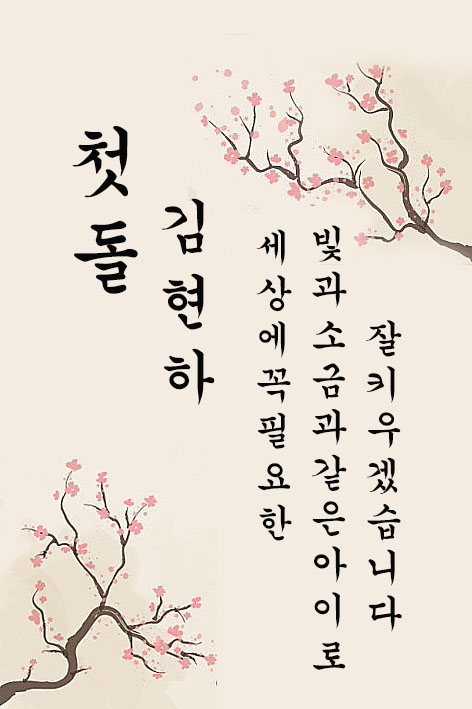 첫돌
김현하
세상에꼭필요한
빛과소금과같은아이로
잘키우겠습니다